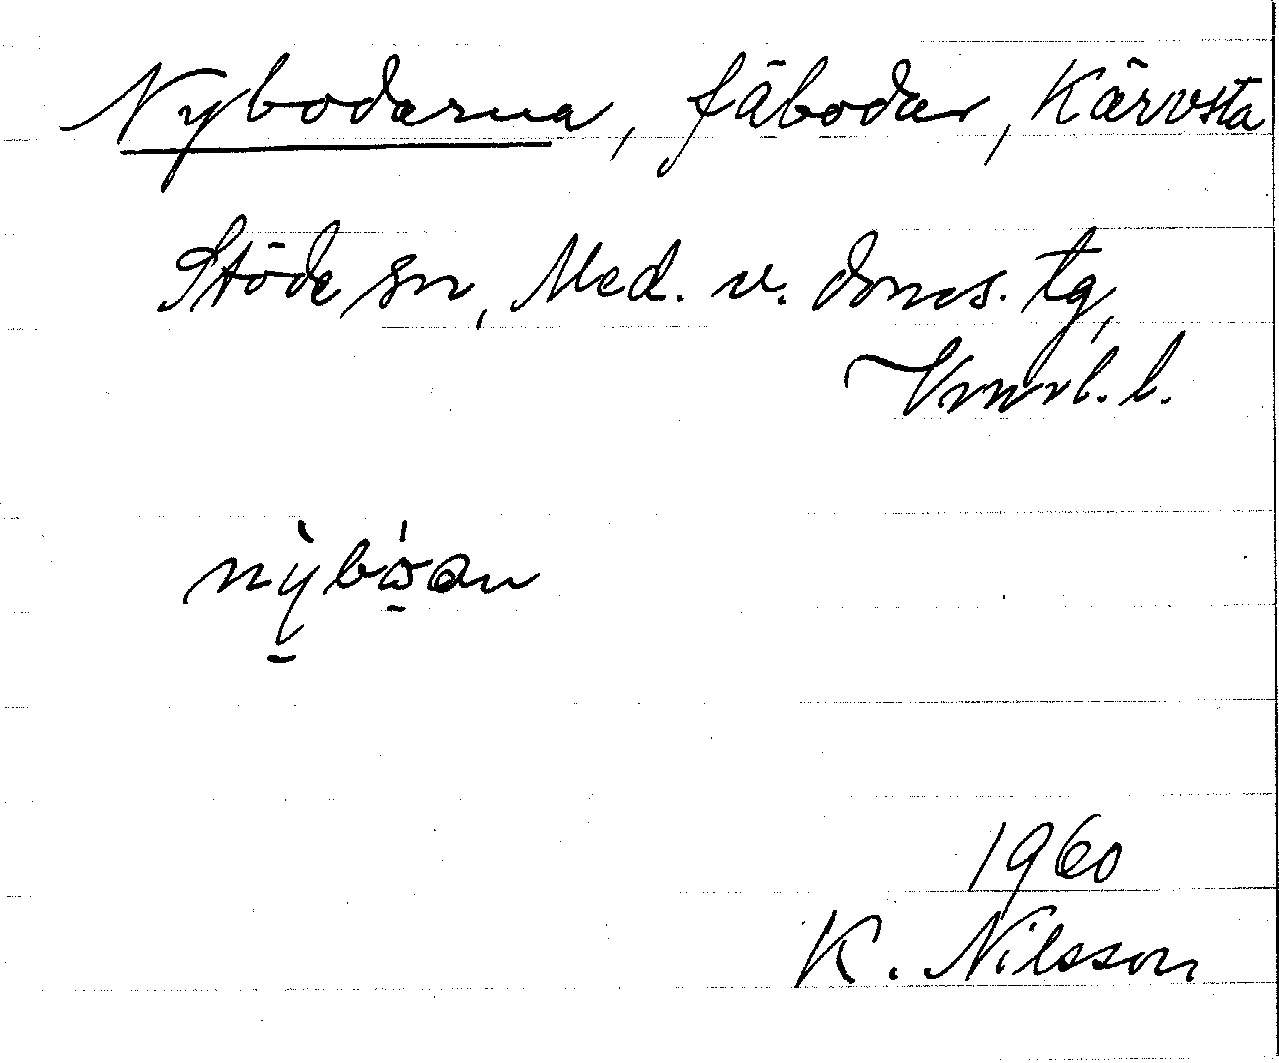 Nybodarna, fäbodar, Kärvsta
Stöde sn, Med. v. doms. tg,
Vmrl. l.
nỳbóan
1960
K. Nilsson